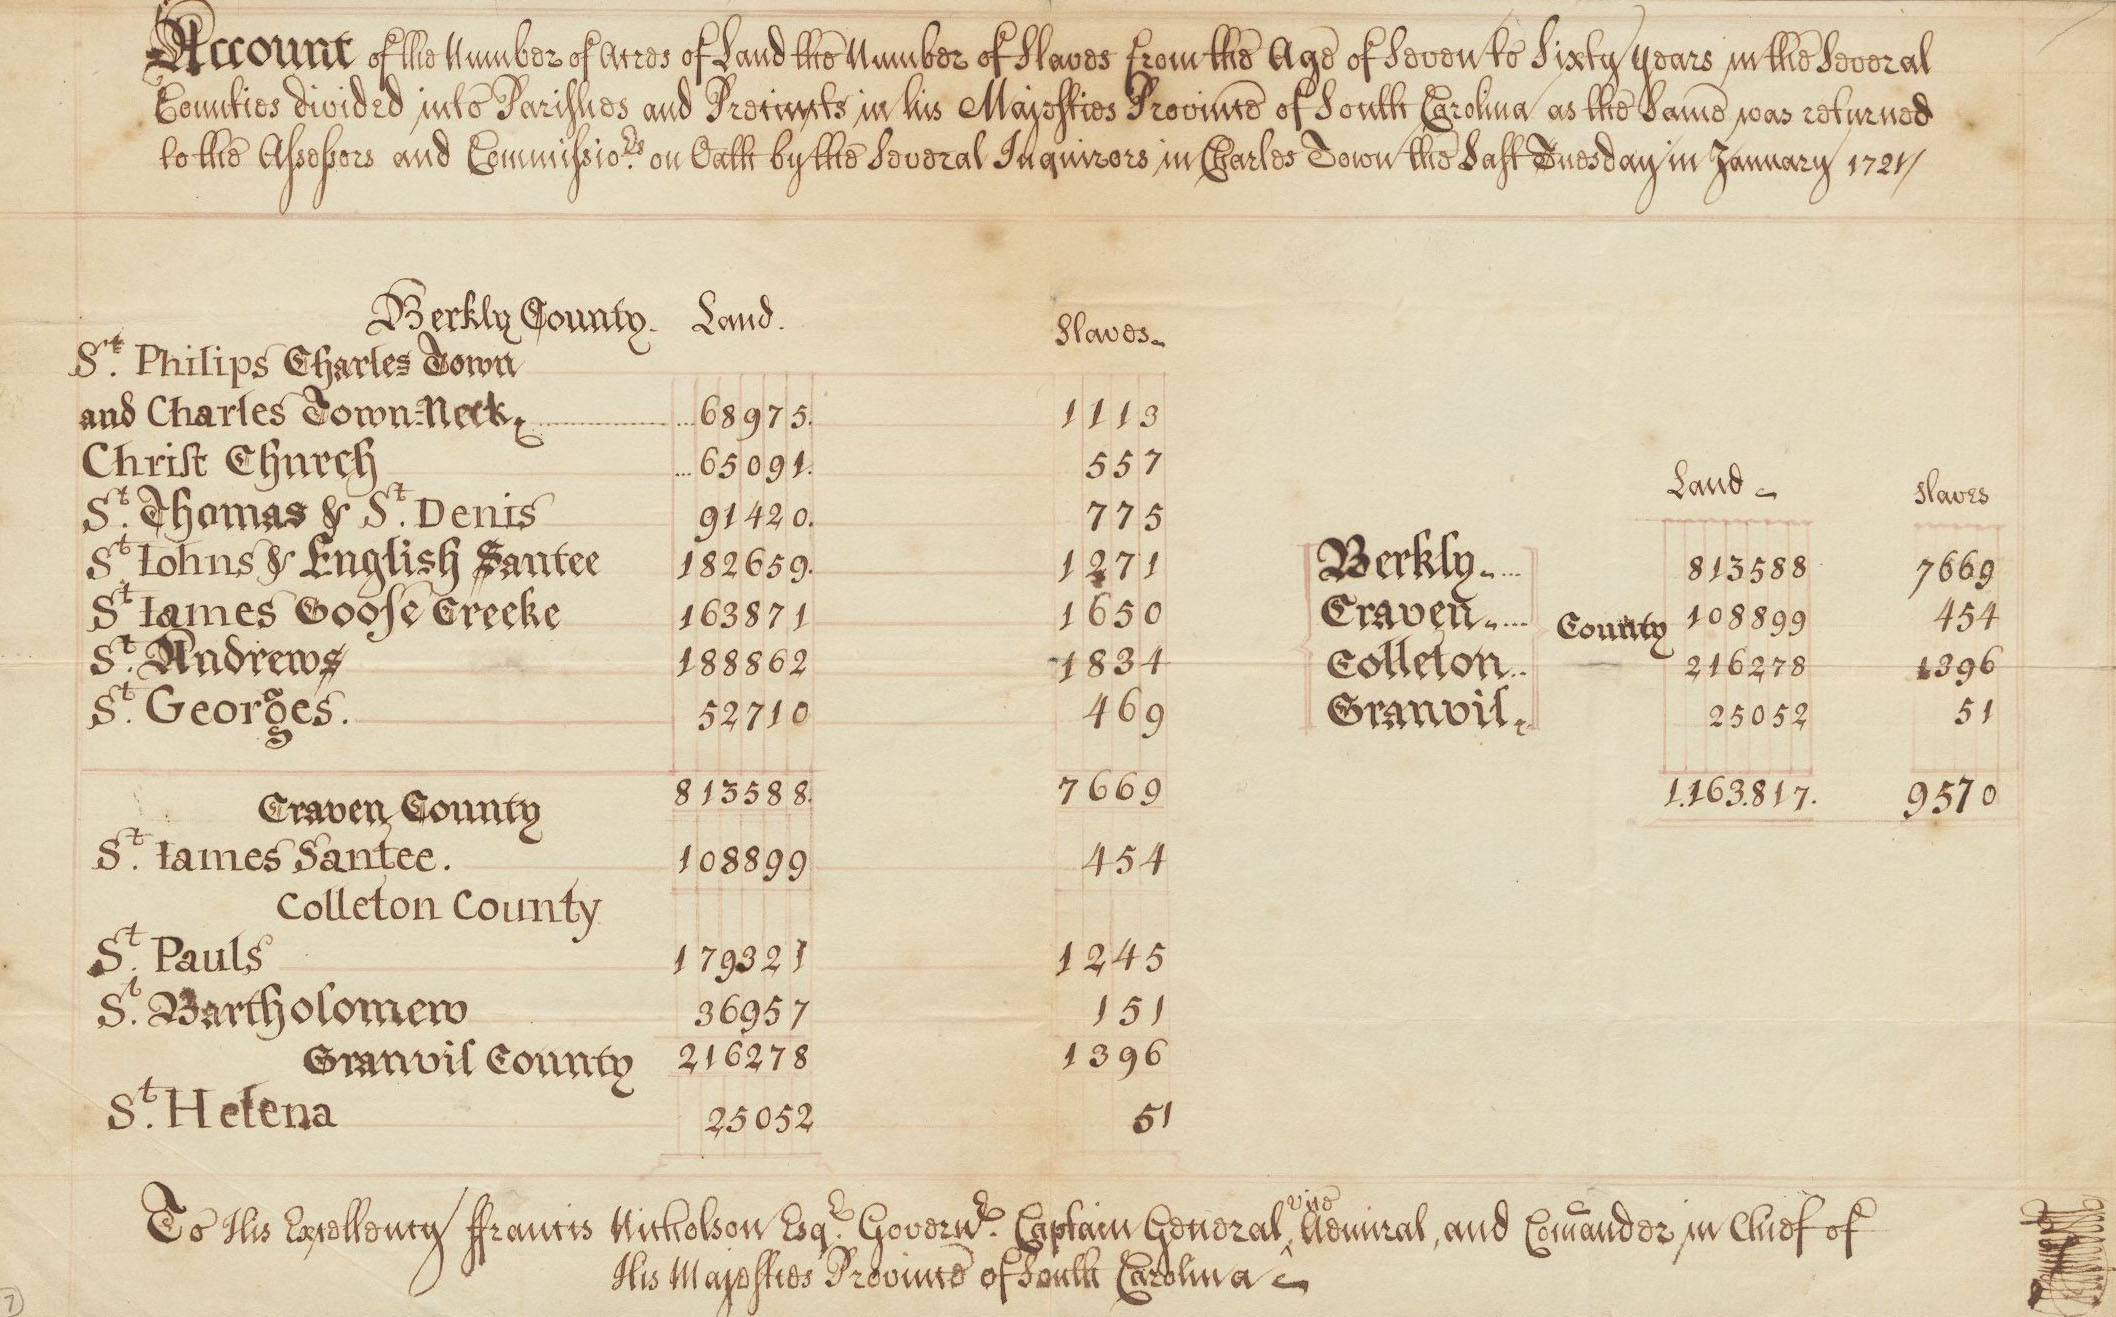 Account of the Number of Acres of Land the Number of Slaves from the Age of Seven to Sixty Years in the Several
Counties divided into Parishes and Precincts in his Majesties Province of South Carolina as the Same was returned
to the Assessors and Commissio.rs on Oath by the Several Inquirers in Charles Town the Last Tuesday in January 1721/
Berkly County. Land. Slaves
St. Philips Charles Town
and Charles Town-Neck 68975. 1113
Christ Church 65091. 557
St. Thomas & St. Denis 91420. 775
St. Iohns & English Santee 182659. 1271
St. Iames Goose Creeke 163871 1650
St. Andrews 188862 1834
St. Georges. 52710 469
813588. 7669
Craven County
St. Iames Santee. 108899 454
Colleton County
St. Pauls 179321 1245
St. Bartholomew 36957 151
Granvil County 216278 1396
St. Helena 25052 51
Land Slaves
Berkly 813588 7669
Craven County 108899 454
Colleton 216278 1396
Granvil 25052 51
1.163.817. 9570
To His Excellency ffrancis Nicholson Esqr. Governr. Captain General, vice Admiral, and Comander in Chief of
His Majesties Province of South Carolina
7